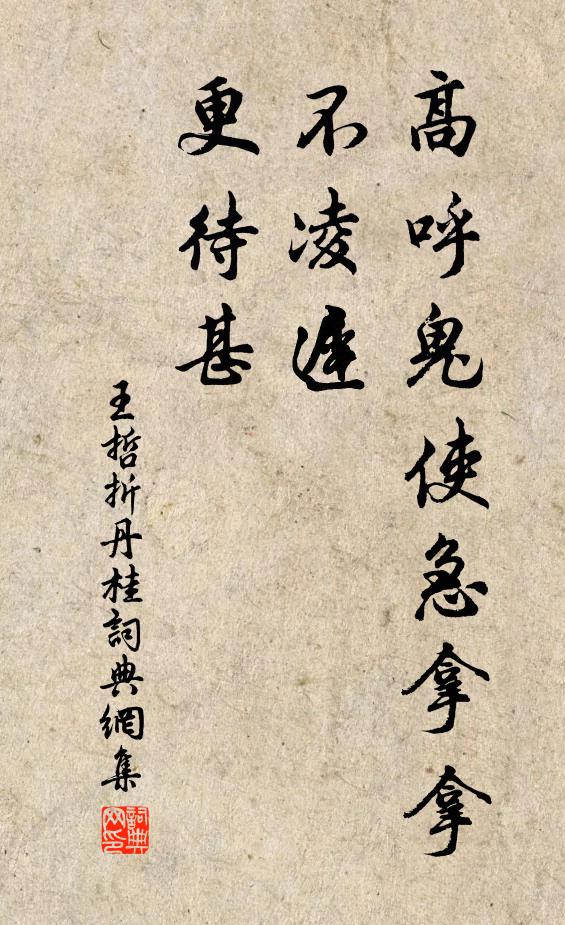 高呼鬼使急拿拿
不凌遲
更待甚
王哲折丹桂詞典網集
詞典网印